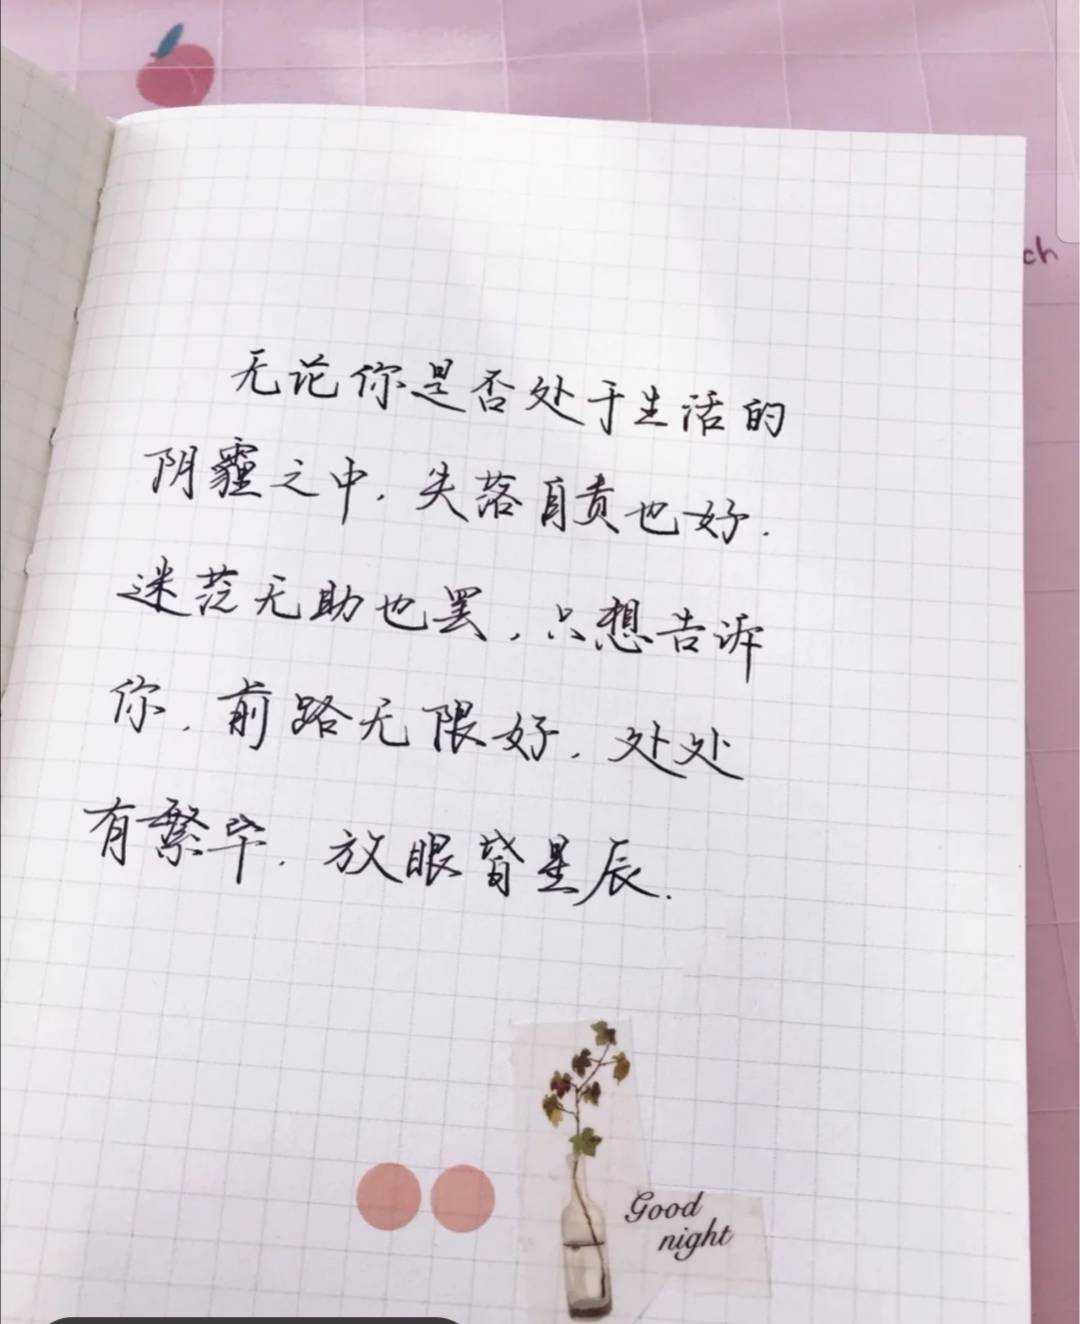 ch
无论你是否处于生活的
阴霾之中.失落自责也好.
迷茫无助也罢,只想告诉
你.前路无限好.处处
有繁华.放眼皆星辰.
Good
night